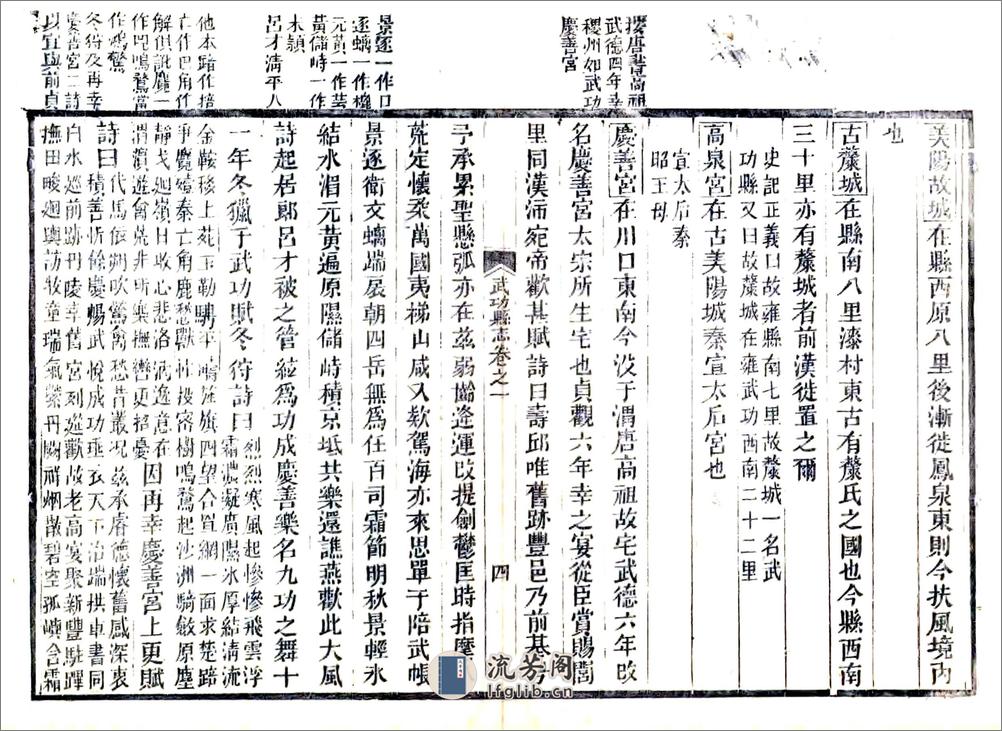 按唐書高祖
武德四年幸
稷州如武功
慶善宮
景逐一作口
元黃一作裝
黃儲峙一作
他本踣作掊
亡作巴角作
冬狩及再幸
慶善宮二詩
美陽故城在縣西原八里後漸徙鳳泉東則今扶風境內
也
古斄城在縣南八里漆村東古有斄氏之國也今縣西南
三十里亦有斄城者前漢徙置之爾
史記正義曰故雍縣南七里故斄城一名武
功縣又曰故斄城在雍武功西南二十二里
高泉宮在古美陽城秦宣太后宮也
宣太后秦
昭王母
慶善宮在川口東南今沒于渭唐高祖故宅武德六年改
名慶善宮太宗所生宅也貞觀六年幸之宴從臣賞賜閭
里同漢沛宛帝歡甚賦詩曰壽邱唯舊跡豐邑乃前基粤
予承累聖懸弧亦在茲弱齡逢運改提劍鬱匡時指麾八
荒定懷柔萬國夷梯山咸入欵駕海亦來思單于陪武帳
景逐衛文螭端扆朝四岳無為任百司霜節明秋景輕氷
結水湄元黃遍原隰儲峙積京坻共樂還譙燕歡此大風
詩起居郎呂才被之管絃爲功成慶善樂名九功之舞十
一年冬獵于武功賦冬狩詩曰烈烈寒風起慘慘飛雲浮
霜濃凝廣隰氷厚結淸流
金鞍移上苑玉勒騁平疇旌旗四望合罝網一面求楚踣
爭兕殪秦亡角鹿愁獸忙投密樹鳴鶩起沙洲騎斂原塵
靜戈迴嶺日收心悲洛汭逸意在
渭濱遊禽荒非所樂撫轡更招憂因再幸慶善宮上更賦
詩曰代馬依朔吹驚禽愁昔叢況茲承睿德懷舊感深衷
積善忻餘慶暢武悅成功垂衣天下治端拱車書同
白水巡前跡丹陵幸舊宮列筵歡故老高宴聚新豐駐蹕
撫田畯迴輿訪牧童瑞氣縈丹闕祥烟散碧空孤嶼含霜
武功縣志卷之一
四
流芳阁
lfglib.cn